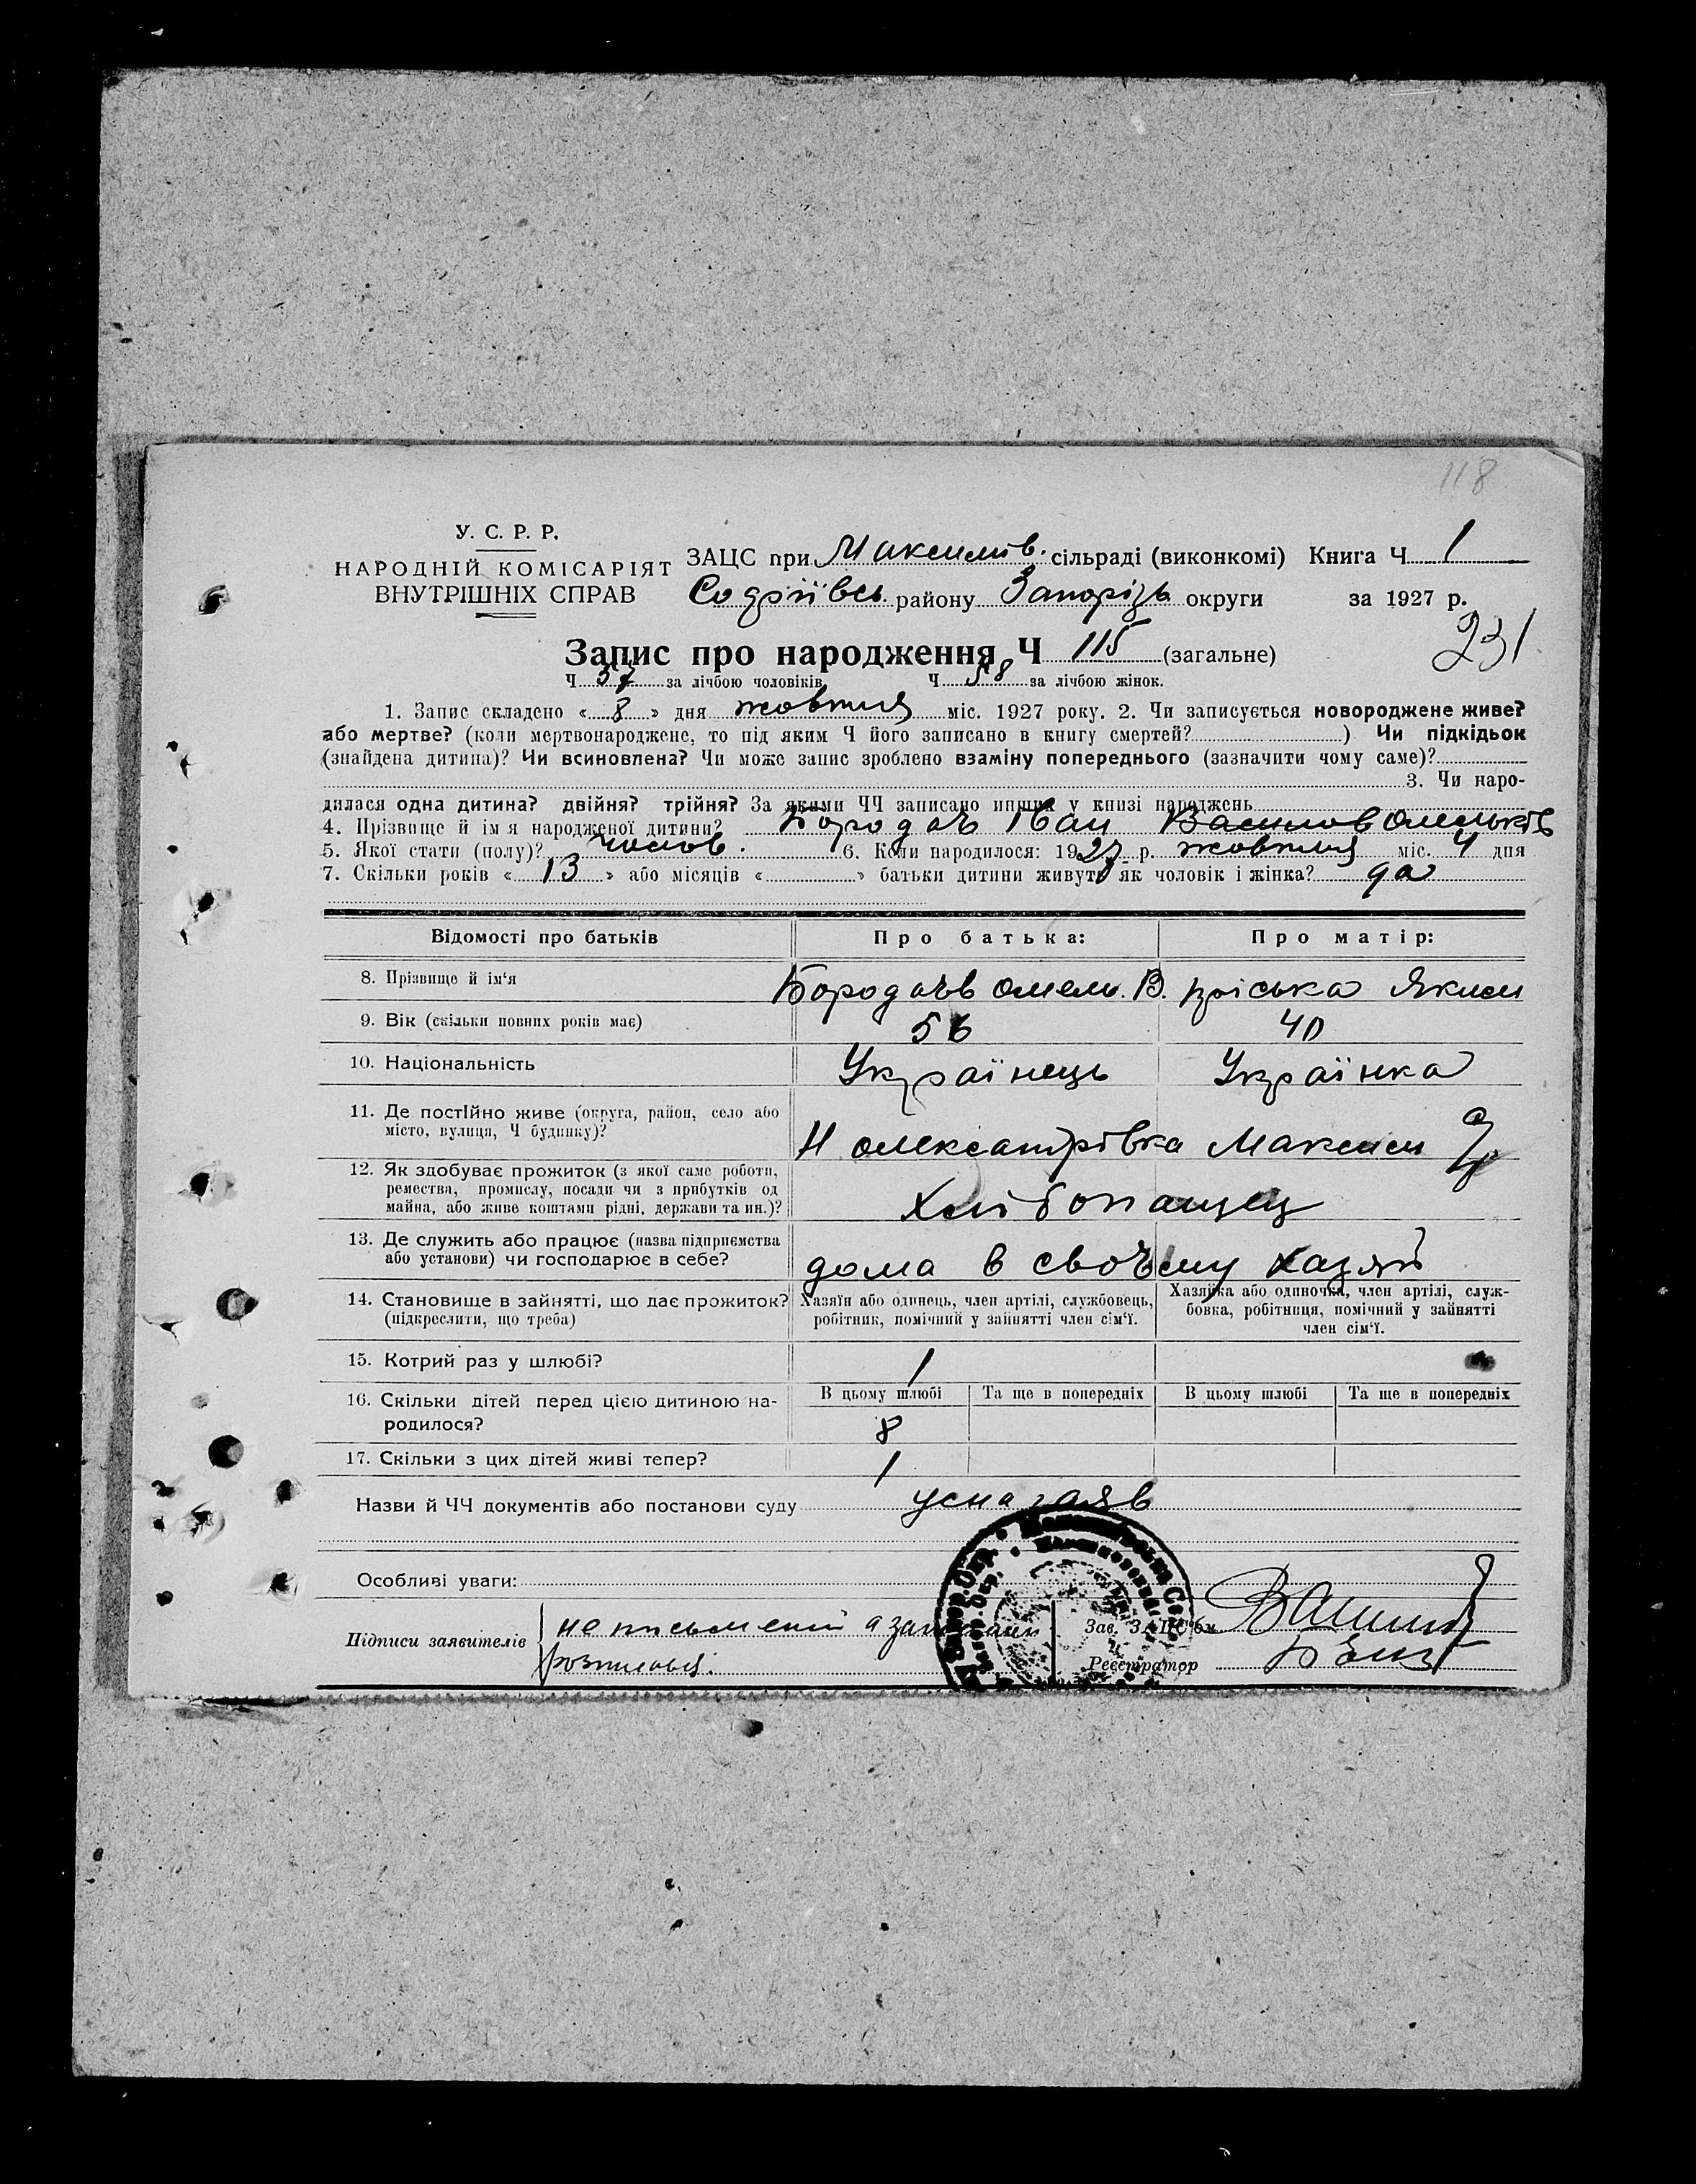 118
У. С. Р. Р.
НАРОДНІЙ КОМІСАРІЯТ
ВНУТРІШНІХ СПРАВ
ЗАЦС при Максимів. сільраді (виконкомі) Книга Ч 1
району Запорізь округи за 1927 р.
231
Запис про народження Ч 115 (загальне)
Ч 57 за лічбою чоловіків Ч 58 за лічбою жінок.
1. Запис складено « 8 » дня жовтня міс. 1927 року. 2. Чи записується новороджене живе?
або мертве? (коли мертвонароджене, то під яким Ч його записано в книгу смертей? ) Чи підкідьок
(знайдена дитина)? Чи всиновлена? Чи може запис зроблено взаміну попереднього (зазначити чому саме)?
3. Чи наро-
дилася одна дитина? двійня? трійня? За якими ЧЧ записано инших у книзі народжень
4. Прізвище й імя народженої дитини? Бородачь Іван Василов Омельків
5. Якої стати (полу)? чолов. 6. Коли народилося: 1927 р. жовтня міс. 4 дня
7. Скільки років « 13 » або місяців « » батьки дитини живуть як чоловік і жінка? да
Відомості про батьків Про батька: Про матір:
8. Прізвище й ім'я Бородачьв Омель. В. Пріська Яким
9. Вік (скільки повних років має) 56 40
10. Національність Українець Українка
11. Де постійно живе (округа, район, село або
місто, вулиця, Ч будинку)? Н Олександрівка Максим
12. Як здобуває прожиток (з якої саме роботи,
ремества, промислу, посади чи з прибутків од
майна, або живе коштами рідні, держави та ин.)? Хлібопашец
13. Де служить або працює (назва підприємства
або установи) чи господарює в себе? дома в своъму хазяй
14. Становище в зайнятті, що дає прожиток?
(підкреслити, що треба)
Хазяїн або одинець, член артілі, службовець,
робітник, помічний у зайнятті член сім'ї.
Хазяйка або одиночка, член артілі, служ-
бовка, робітниця, помічний у зайнятті
член сім'ї.
15. Котрий раз у шлюбі? 1
16. Скільки дітей перед цією дитиною на-
родилося?
В цьому шлюбі Та ще в попередніх В цьому шлюбі Та ще в попередніх
8
17. Скільки з цих дітей живі тепер? 1
Назви й ЧЧ документів або постанови суду усна заяв
Особливі уваги:
Підписи заявителів не письмений а за
розписався.
Зав. ЗАЦС'ом
Реєстратор